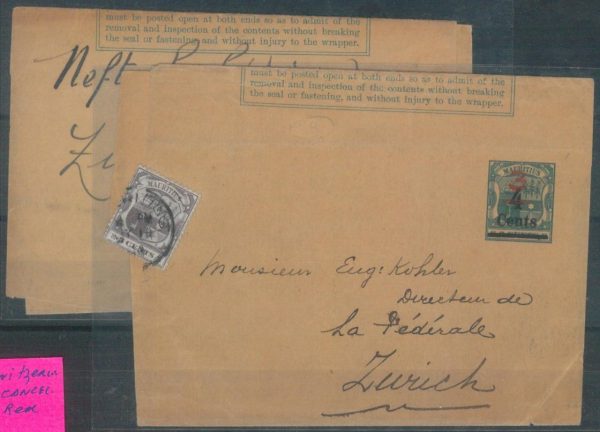 must be posted open at both ends so as to admit of the
removal and inspection of the contents without breaking
the seal or fastening, and without injury to the wrapper.
Neft
must be posted open at both ends so as to admit of the
removal and inspection of the contents without breaking
the seal or fastening, and without injury to the wrapper.
MAURITIUS
4
Cents
MAURITIUS
CENTS
Monsieur Eug: Kohler
Directeur de
La Fédérale
Zurich
CANCEL